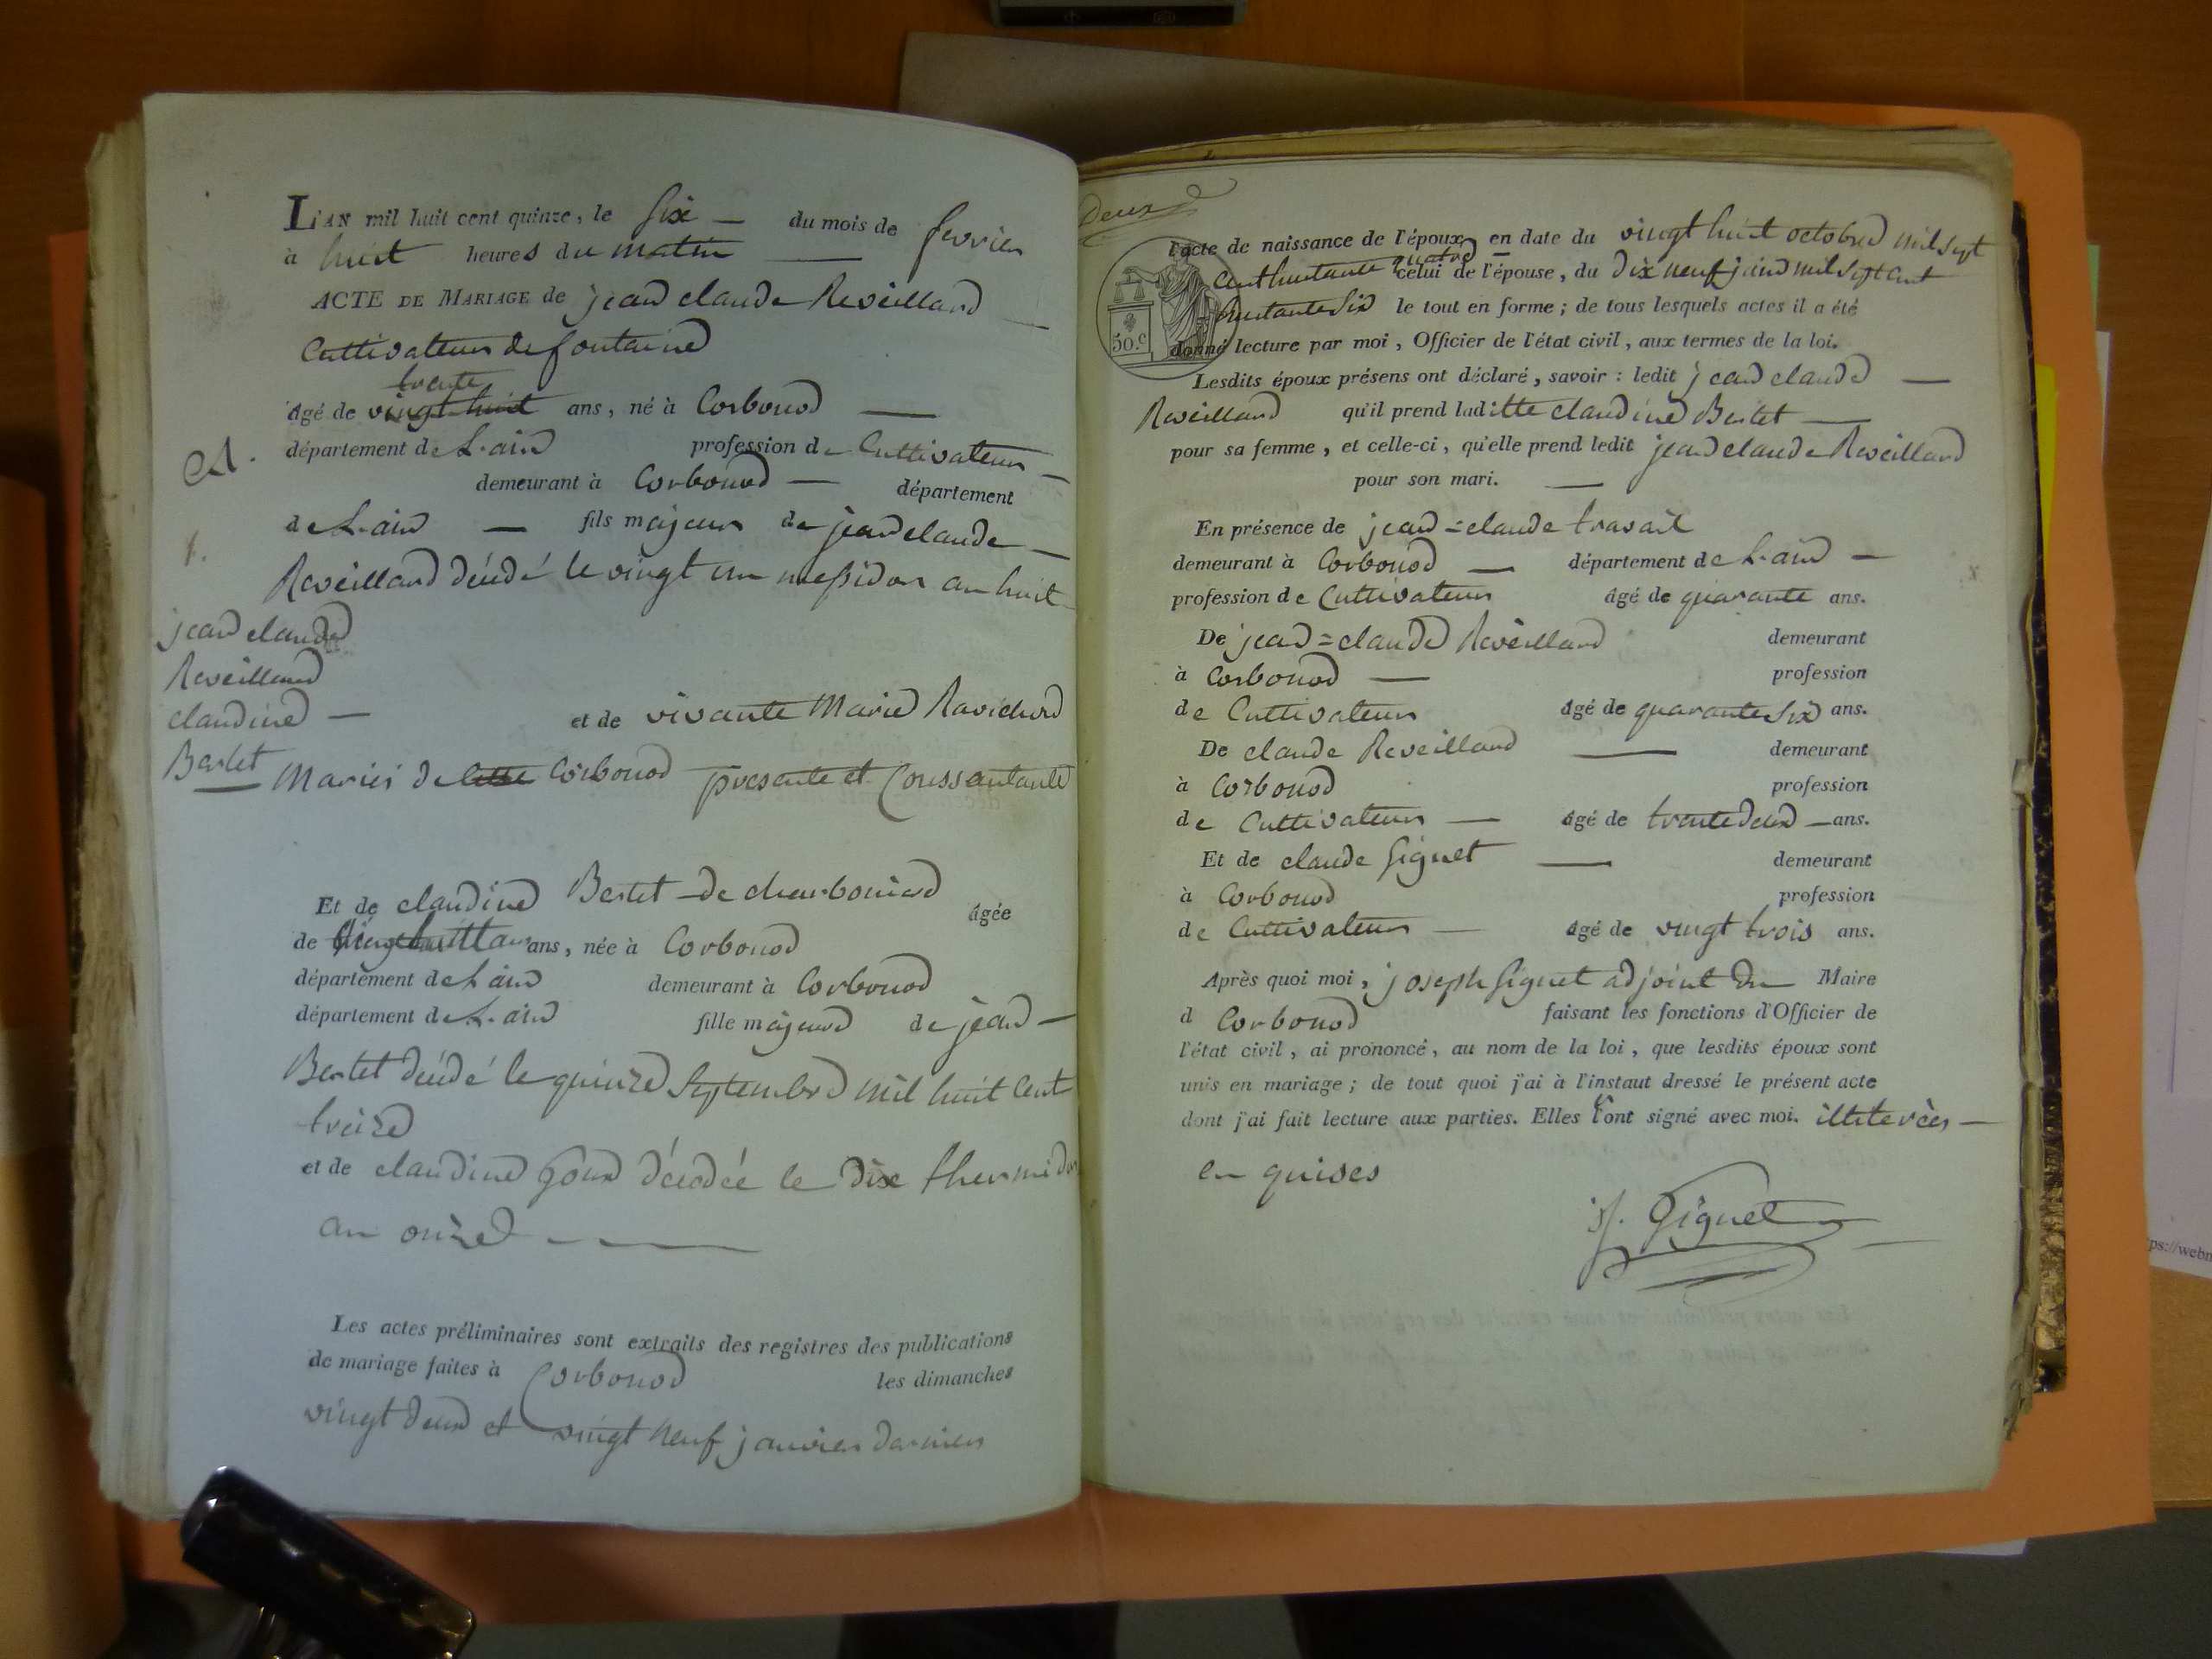 L'AN mil huit cent quinze, le six — du mois de fevrier
à huit heures du matin —
ACTE DE MARIAGE de jean claude Reveillard —
Cultivateur de fontaine
trente
âgé de vingt huit ans, né à Corbonod —
département de L'ain profession de Cultivateur —
demeurant à Corbonod — département
de L'ain — fils majeur de jean claude —
Reveillard décédé le vingt un messidor an huit
1.
jean claude
Reveillard
claudine —
Bertet
et de vivante Marie Ravichod
Mariés de Corbonod presente et Conssantante
Et de claudine Bertet de charbonierd âgée
de vingt huit ans ans, née à Corbonod
département de L'ain demeurant à Corbonod
département de L'ain fille majeure de jean —
Bertet décédé le quinze septembre mil huit cent
treize
et de claudine goux décédée le dix thermidor
an onze —
Les actes préliminaires sont extraits des registres des publications
de mariage faites à Corbonod les dimanches
vingt deux et vingt neuf janvier dernier
Deux
l'acte de naissance de l'époux en date du vingt huit octobre mil sept
cent huitante quatre celui de l'épouse, du dix neuf juin mil sept cent
huitante six le tout en forme ; de tous lesquels actes il a été
50.c
donné lecture par moi, Officier de l'état civil, aux termes de la loi.
Lesdits époux présens ont déclaré, savoir : ledit jean claude —
Reveillard qu'il prend laditte claudine Bertet —
pour sa femme, et celle-ci, qu'elle prend ledit jean claude Reveillard
pour son mari. —
En présence de jean=claude travail
demeurant à Corbonod — département de L'ain —
profession de Cultivateur âgé de quarante ans.
De jean=claude Reveillard demeurant
à Corbonod — profession
de Cultivateur âgé de quarante six ans.
De claude Reveillard — demeurant
à Corbonod profession
de Cultivateur — âgé de trente deux — ans.
Et de claude Gignet — demeurant
à Corbonod profession
de Cultivateur — âgé de vingt trois ans.
Après quoi moi, joseph Gignet adjoint du Maire
d Corbonod faisant les fonctions d'Officier de
l'état civil, ai prononcé, au nom de la loi, que lesdits époux sont
unis en mariage ; de tout quoi j'ai à l'instant dressé le présent acte
dont j'ai fait lecture aux parties. Elles ont signé avec moi. illiterées —
en quises
J. Gignet
ps://webm